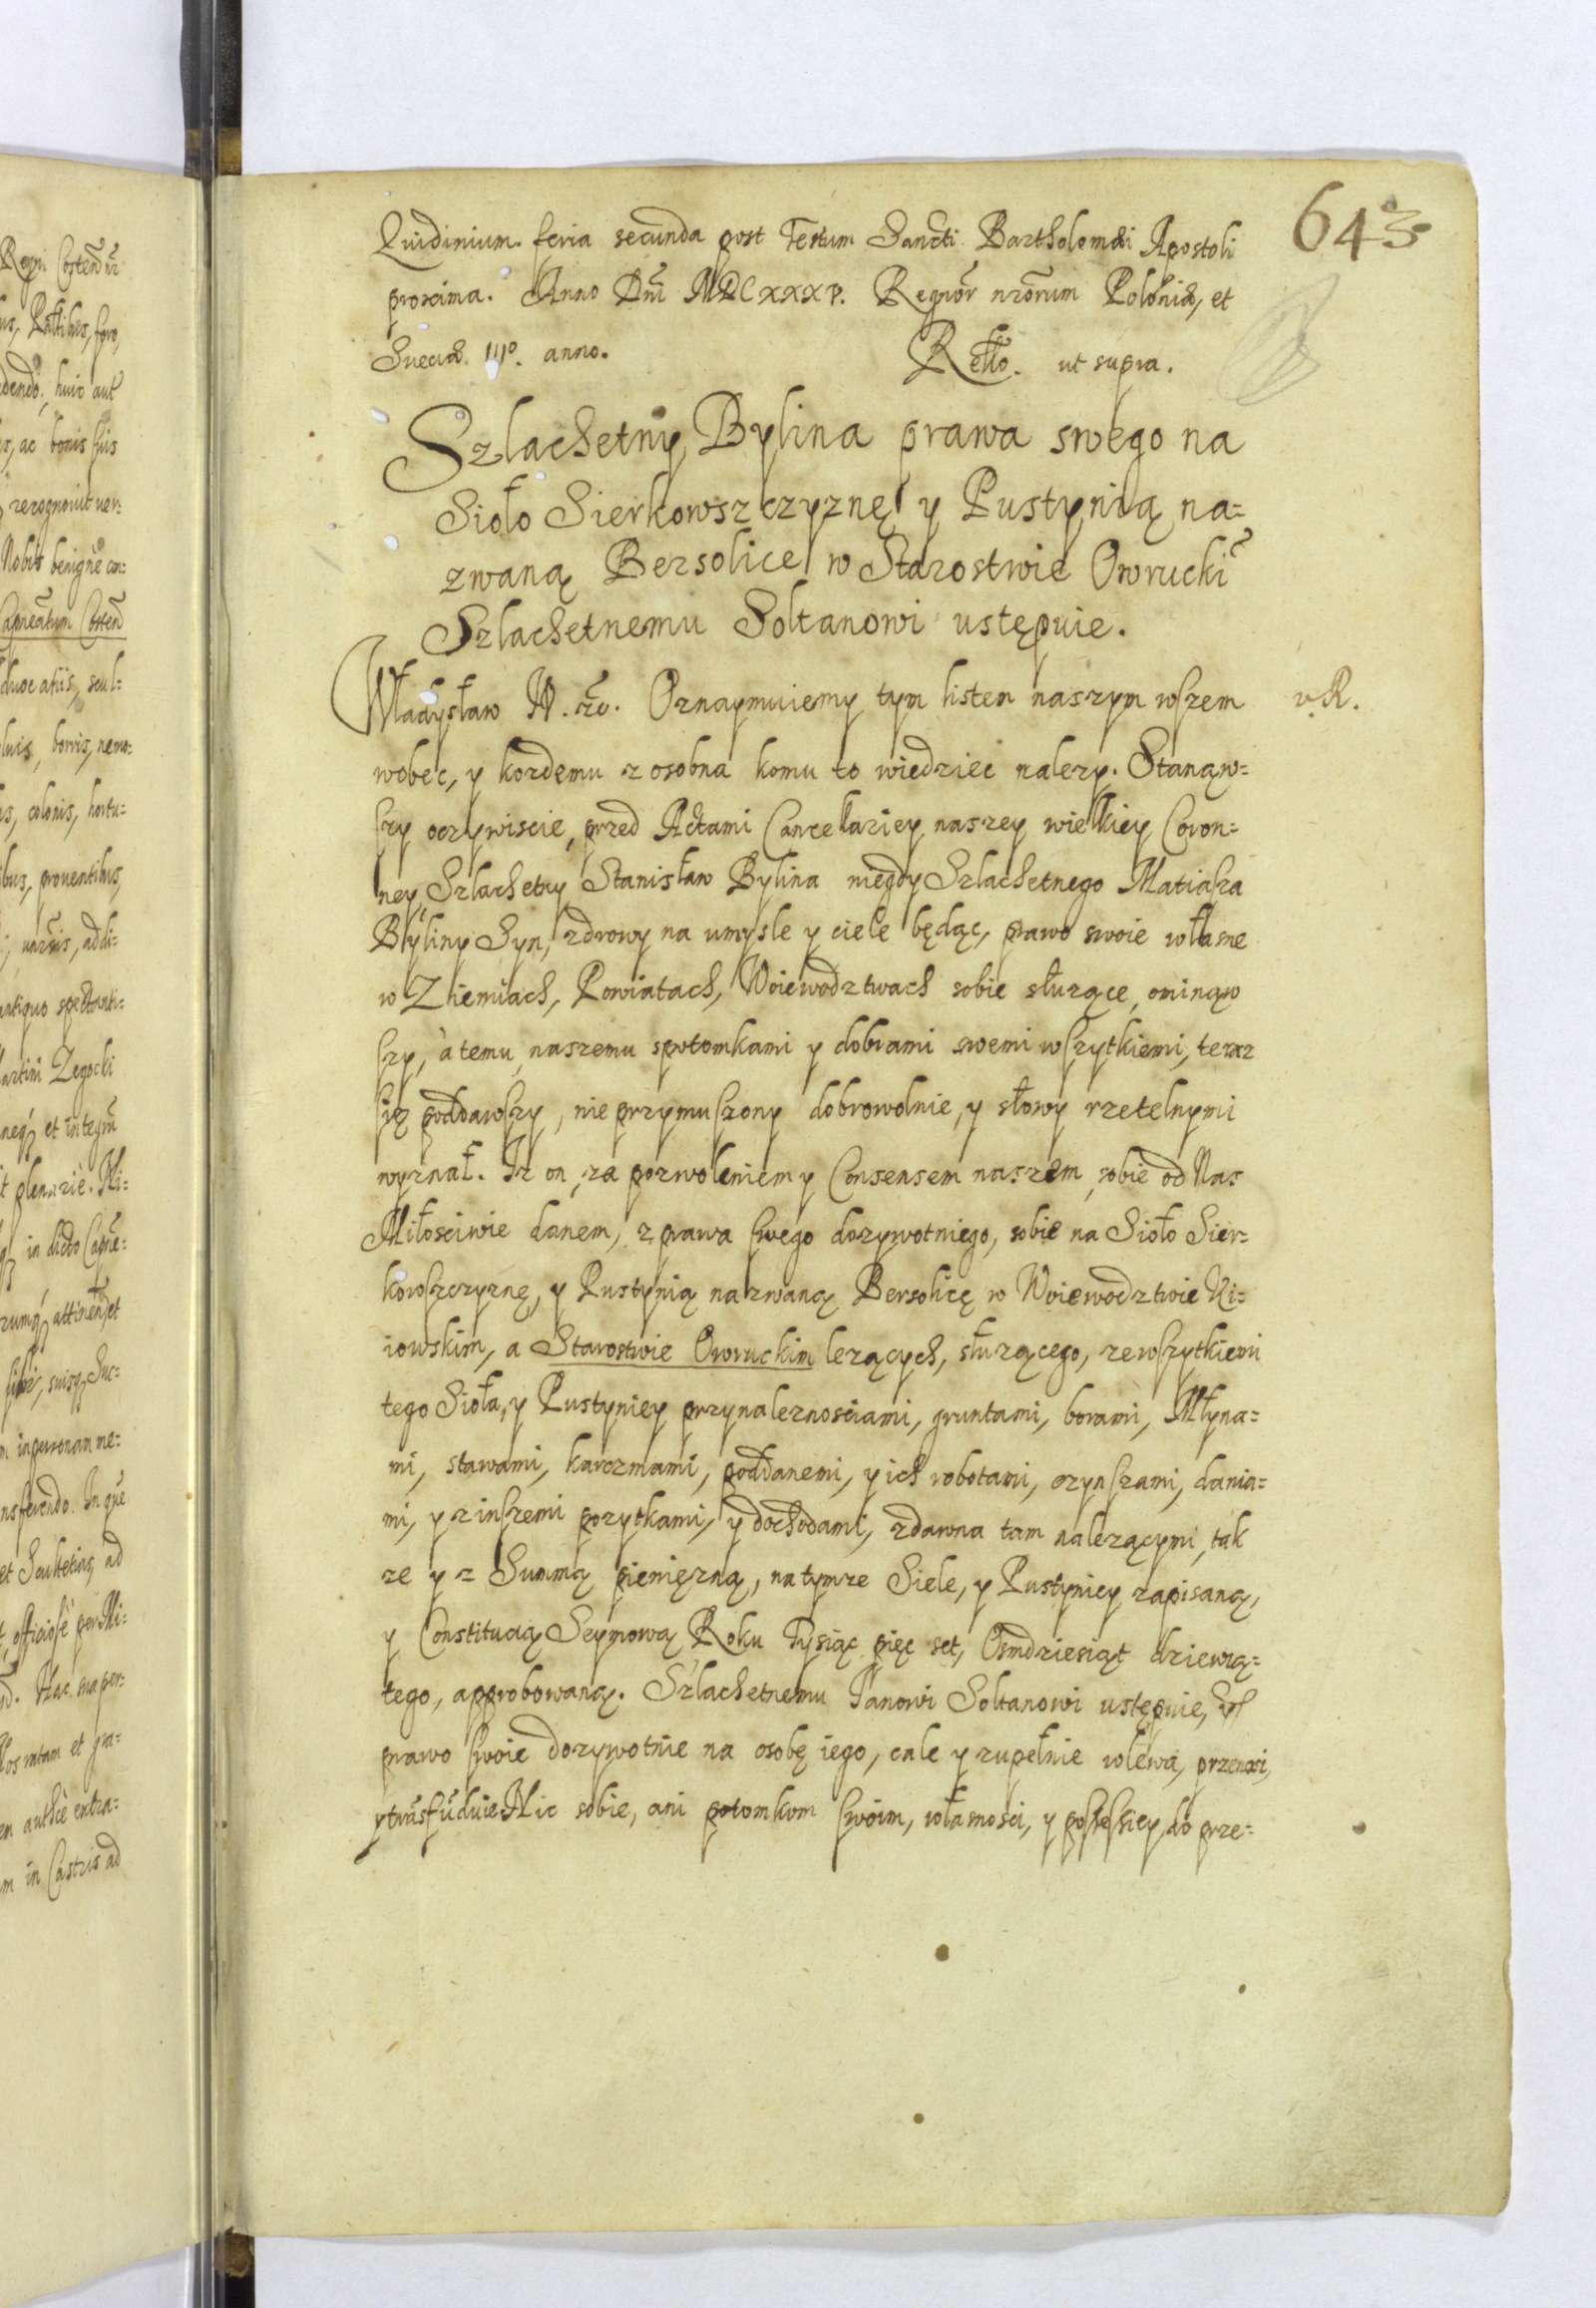 643
Quidinium. feria secunda post Festum Sancti Bartholomæi Apostoli
proxima. Anno Dñi MDCXXXV. Regnor̃ nrõrum Poloniæ, et
Sueciæ. IIIº. anno. Rełło. ut supra.
Szlachetny Bylina prawa swego na
Sioło Sierkowszczyznę y Pustynią na=
zwaną Bersolice w Starostwie Owruckĩ
Szlachetnemu Soltanowi ustępuie.
Władysław IV. etc. Oznaymuiemy tym listem naszym wszem
v. R.
wobec, y kozdemu z osobna komu to wiedziec nalezy. Stanąw=
szy oczywiscie, przed Actami Cancelariey naszey wielkiey Coron=
ney Szlachetny Stanisław Bylina niegdy Szlachetnego Matiasza
Byliny Syn, zdrowy na umysle y ciele będąc, prawo swoie własne
w Ziemiach, Powiatach, Woiewodztwach sobie słuzące, ominąw
szy, à temu naszemu spotomkami y dobrami swemi wszytkiemi, teraz
się poddawszy, nie przymuszony dobrowolnie, y słowy rzetelnymi
wyznał. Iz on, za pozwoleniem y Consensem naszem, sobie od Nas
Miłosciwie danem, z prawa swego dozywotniego, sobie na Sioło Sier=
kowszczyznę, y Pustynią nazwaną Bersolicę w Woiewodztwie Ki=
iowskim, a Starostwie Owruckim lezących, słuzącego, zewszytkiemi
tego Sioła, y Pustyniey przynaleznosciami, gruntami, borami, Młyna=
mi, stawami, karczmami, poddanemi, y ich robotami, czynszami, dania=
mi, y z inszemi pozytkami, y dochodami, zdawna tam nalezącymi, tak
ze y z Summą pieniężną, na tymze Siele, y Pustyniey zapisaną,
y Constitucią Seymową Roku Tysiąc pięc set, Osmdziesiąt dziewią=
tego, approbowaną. Szlachetnemu Janowi Soltanowi ustępuie,
prawo swoie dozywotnie na osobę iego, cale y zupełnie wlewa, przenosi,
y trãsfũduie Nic sobie, ani potomkom swoim, własnosci, y possessiey do prze=